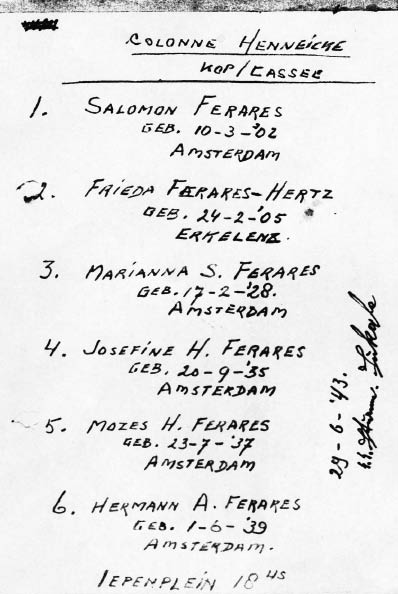 COLONNE HENNEICKE
KOP/CASSEE
1. SALOMON FERARES
GEB. 10-3-'02
AMSTERDAM
2. FRIEDA FERARES-HERTZ
GEB. 24-2-'05
ERKELENZ.
3. MARIANNA S. FERARES
GEB. 17-2-'28.
AMSTERDAM
4. JOSEFINE H. FERARES
GEB. 20-9-'35
AMSTERDAM
5. MOZES H. FERARES
GEB. 23-7-'37
AMSTERDAM
6. HERMANN A. FERARES
GEB. 1-6-'39
AMSTERDAM.
IEPENPLEIN 18 HS
29-6-'43.